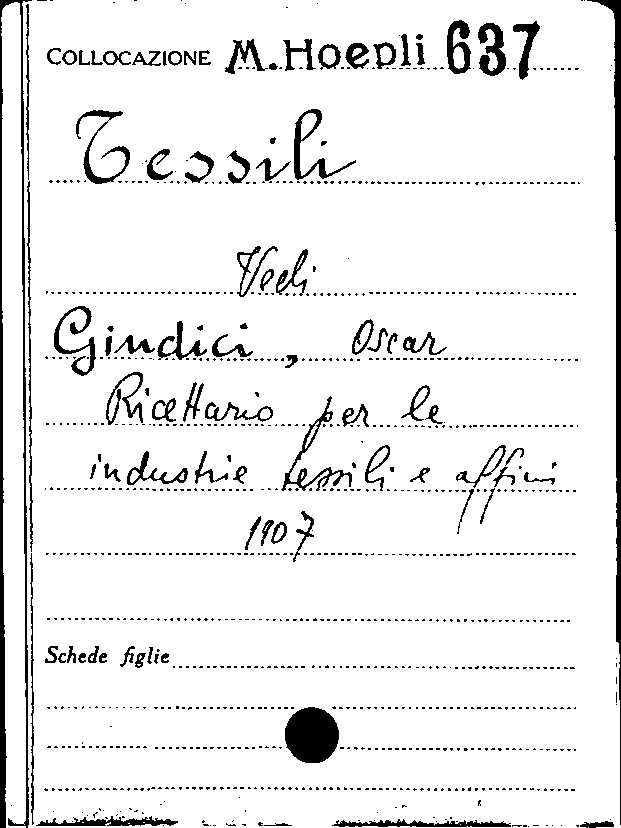 COLLOCAZIONE M. Hoepli 637
Tessili
Vedi
Giudici, Oscar
Ricettario per le
industrie tessili e affini
1907
Schede figlie